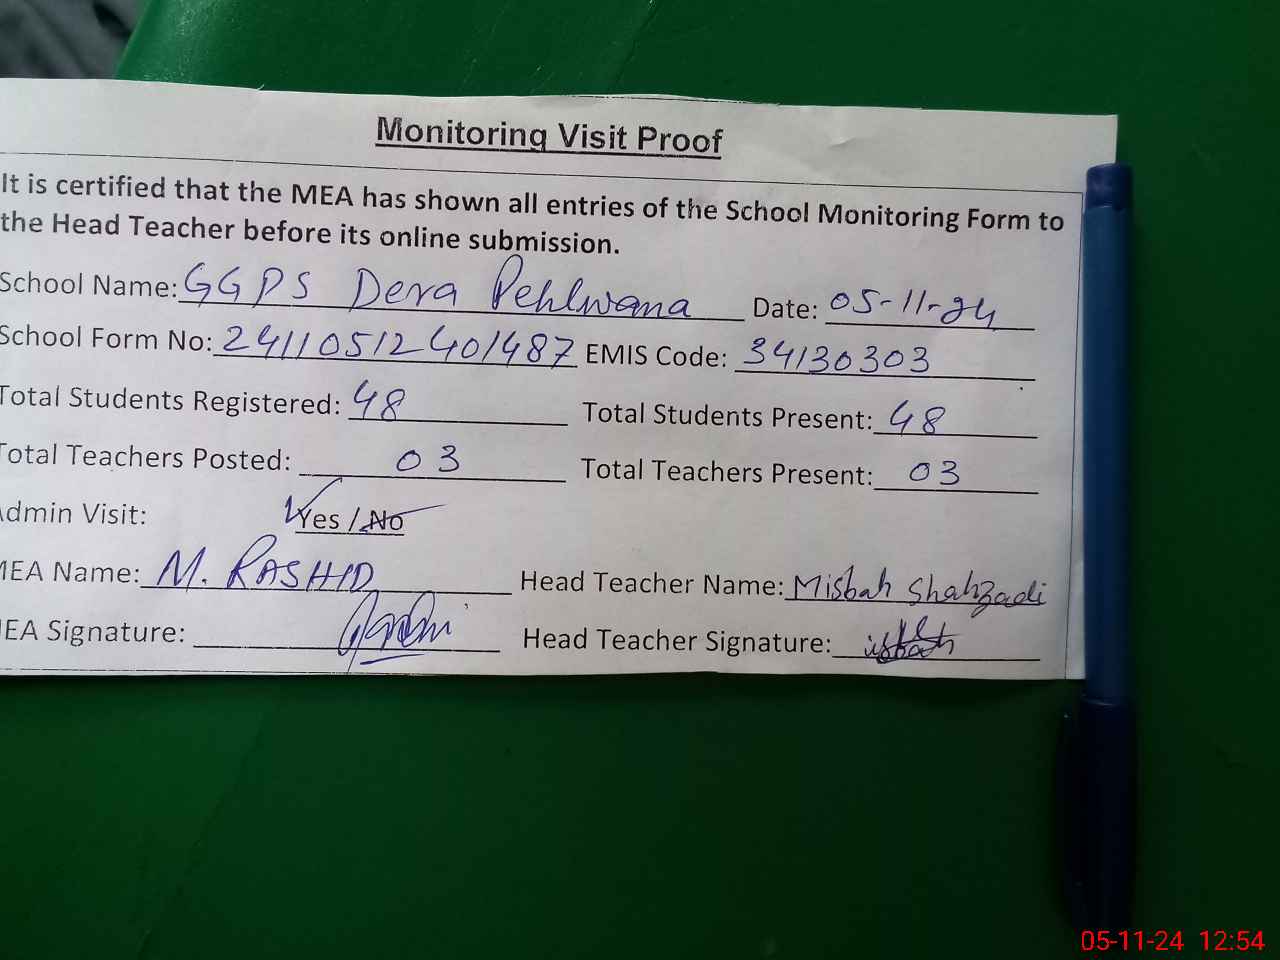 Monitoring Visit Proof
It is certified that the MEA has shown all entries of the School Monitoring Form to
the Head Teacher before its online submission.
School Name: GGPS Dera Pehlwana Date: 05-11-24
School Form No: 24110512401487 EMIS Code: 34130303
Total Students Registered: 48 Total Students Present: 48
Total Teachers Posted: 03 Total Teachers Present: 03
Admin Visit: Yes / No
MEA Name: M. RASHID Head Teacher Name: Misbah Shahzadi
MEA Signature: Head Teacher Signature:
05-11-24 12:54